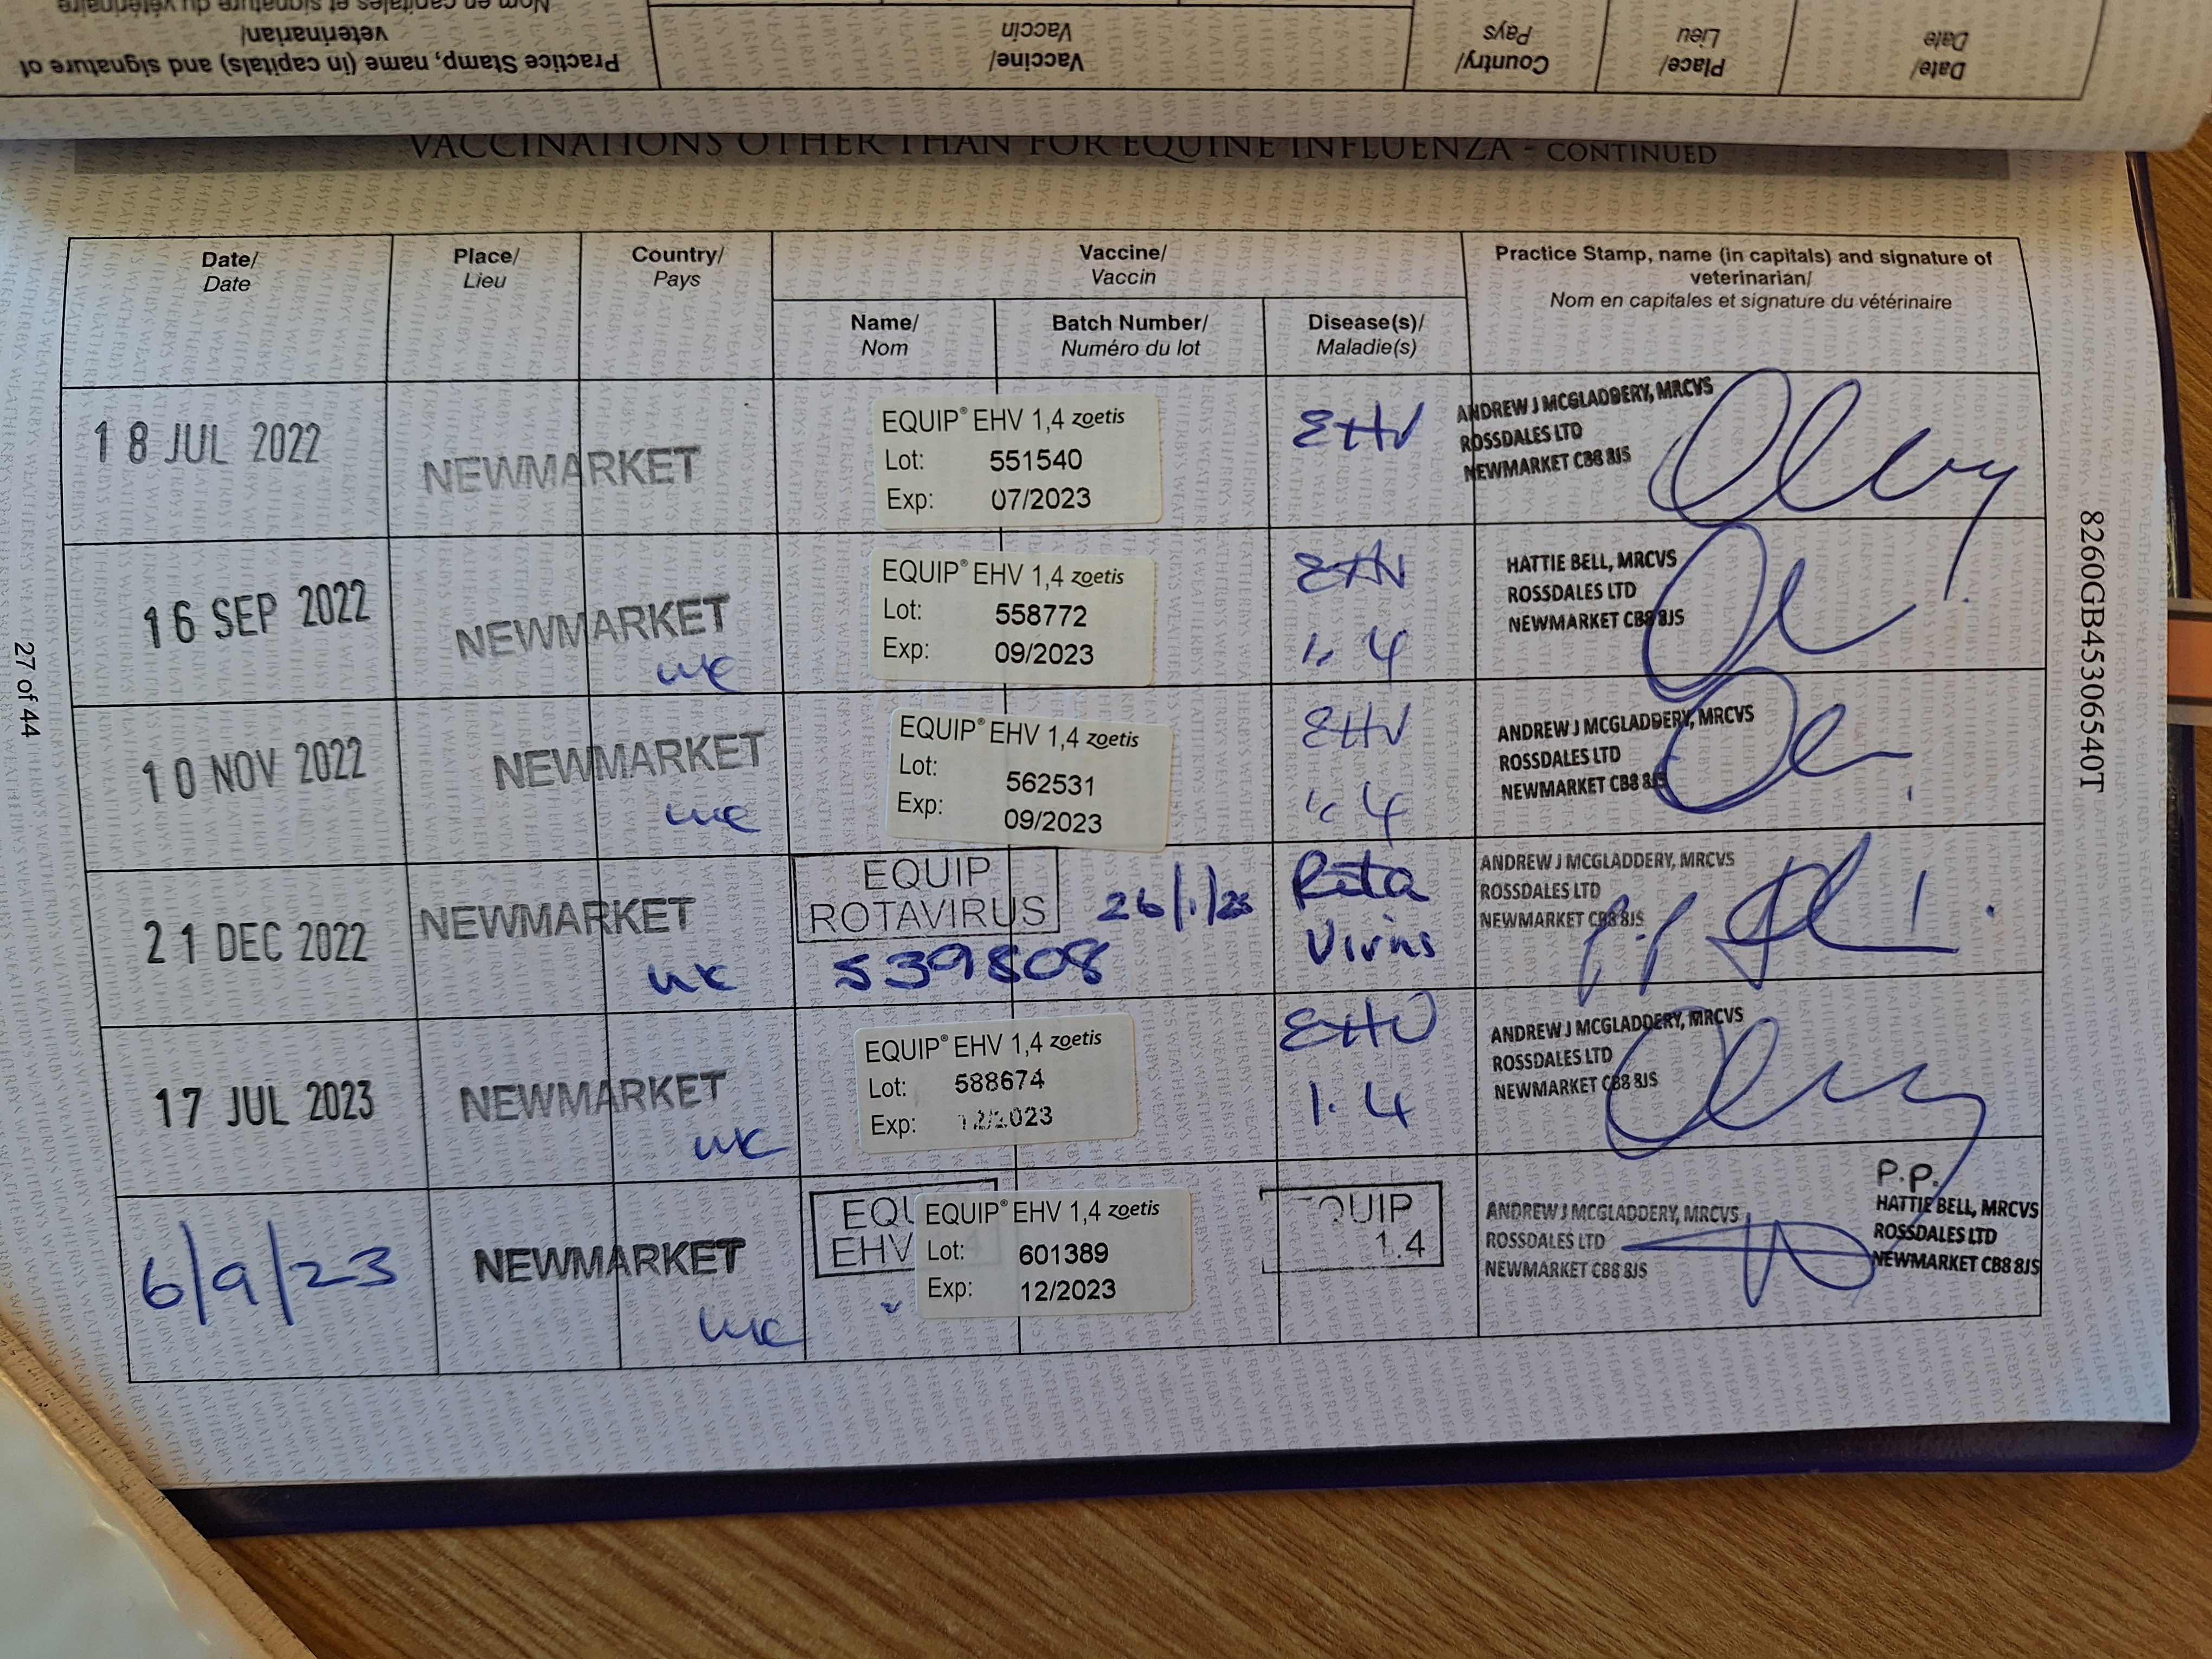 Nom en capitales et signature du vétérinaire
Practice Stamp, name (in capitals) and signature of
veterinarian/
Vaccine/
Vaccin
Country/
Pays
Place/
Lieu
Date/
Date
VACCINATIONS OTHER THAN FOR EQUINE INFLUENZA - CONTINUED
Date/
Date
Place/
Lieu
Country/
Pays
Vaccine/
Vaccin
Practice Stamp, name (in capitals) and signature of
veterinarian/
Nom en capitales et signature du vétérinaire
Name/
Nom
Batch Number/
Numéro du lot
Disease(s)/
Maladie(s)
18 JUL 2022
NEWMARKET
EQUIP® EHV 1,4 zoetis
Lot: 551540
Exp: 07/2023
EHV
ANDREW J MCGLADDERY, MRCVS
ROSSDALES LTD
NEWMARKET CB8 8JS
16 SEP 2022
NEWMARKET
UK
EQUIP® EHV 1,4 zoetis
Lot: 558772
Exp: 09/2023
EHV
1. 4
HATTIE BELL, MRCVS
ROSSDALES LTD
NEWMARKET CB8 8JS
10 NOV 2022
NEWMARKET
UK
EQUIP® EHV 1,4 zoetis
Lot: 562531
Exp: 09/2023
EHV
1. 4
ANDREW J MCGLADDERY, MRCVS
ROSSDALES LTD
NEWMARKET CB8 8JS
21 DEC 2022
NEWMARKET
UK
EQUIP
ROTAVIRUS
539508
26/1/23
Rota
Virus
ANDREW J MCGLADDERY, MRCVS
ROSSDALES LTD
NEWMARKET CB8 8JS
p.p
17 JUL 2023
NEWMARKET
UK
EQUIP® EHV 1,4 zoetis
Lot: 588674
Exp: 12/2023
EHV
1. 4
ANDREW J MCGLADDERY, MRCVS
ROSSDALES LTD
NEWMARKET CB8 8JS
6/9/23
NEWMARKET
UK
EQU
EHV
EQUIP® EHV 1,4 zoetis
Lot: 601389
Exp: 12/2023
QUIP
1.4
ANDREW J MCGLADDERY, MRCVS
ROSSDALES LTD
NEWMARKET CB8 8JS
P.P.
HATTIE BELL, MRCVS
ROSSDALES LTD
NEWMARKET CB8 8JS
27 of 44
8260GB45306540T